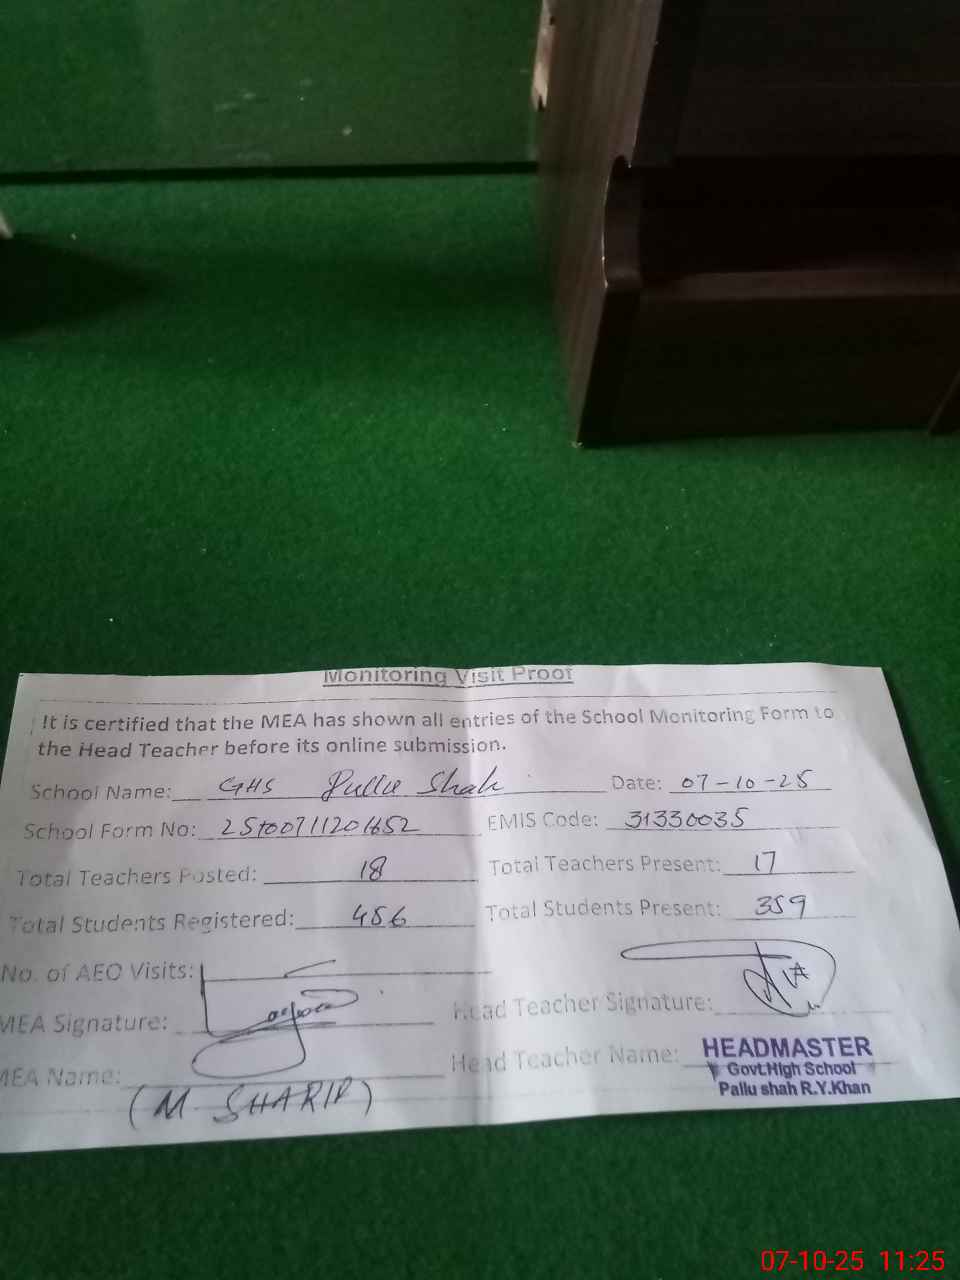 Monitoring Visit Proof
It is certified that the MEA has shown all entries of the School Monitoring Form to
the Head Teacher before its online submission.
School Name: GHS Pullu Shah Date: 07-10-25
School Form No: EMIS Code: 31330035
Total Teachers Posted: 18 Total Teachers Present: 17
Total Students Registered: 456 Total Students Present: 359
No. of AEO Visits:
MEA Signature: Head Teacher Signature:
MEA Name: Head Teacher Name: HEADMASTER
Govt.High School
Pallu shah R.Y.Khan
(M. SHARIF)
07-10-25 11:25